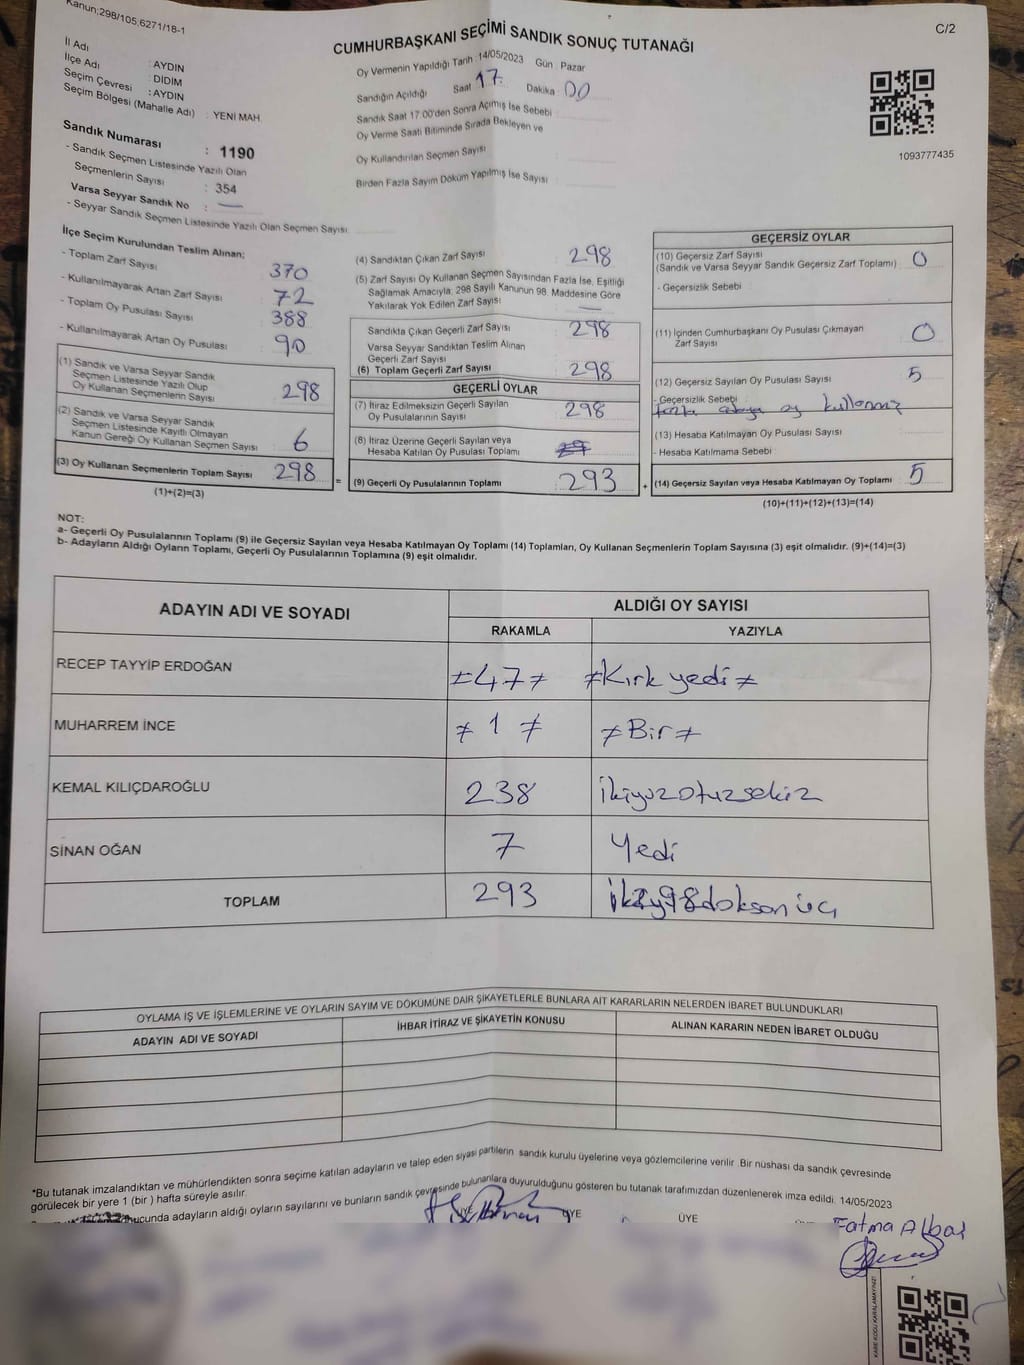 Kanun;298/105;6271/18-1
C/2
CUMHURBAŞKANI SEÇİMİ SANDIK SONUÇ TUTANAĞI
İl Adı : AYDIN
İlçe Adı : DİDİM
Seçim Çevresi : AYDIN
Seçim Bölgesi (Mahalle Adı) : YENİ MAH.
Sandık Numarası : 1190
- Sandık Seçmen Listesinde Yazılı Olan
Seçmenlerin Sayısı : 354
Varsa Seyyar Sandık No : —
- Seyyar Sandık Seçmen Listesinde Yazılı Olan Seçmen Sayısı:
Oy Vermenin Yapıldığı Tarih : 14/05/2023 Gün : Pazar
Sandığın Açıldığı Saat : 17. Dakika : 00
Sandık Saat 17:00'den Sonra Açılmış İse Sebebi :
Oy Verme Saati Bitiminde Sırada Bekleyen ve
Oy Kullandırılan Seçmen Sayısı :
Birden Fazla Sayım Döküm Yapılmış İse Sayısı :
1093777435
İlçe Seçim Kurulundan Teslim Alınan;
- Toplam Zarf Sayısı : 370
- Kullanılmayarak Artan Zarf Sayısı : 72
- Toplam Oy Pusulası Sayısı : 388
- Kullanılmayarak Artan Oy Pusulası : 90
(1) Sandık ve Varsa Seyyar Sandık
Seçmen Listesinde Yazılı Olup
Oy Kullanan Seçmenlerin Sayısı : 298
(2) Sandık ve Varsa Seyyar Sandık
Seçmen Listesinde Kayıtlı Olmayan
Kanun Gereği Oy Kullanan Seçmen Sayısı : 6
(3) Oy Kullanan Seçmenlerin Toplam Sayısı : 298
(1)+(2)=(3)
(4) Sandıktan Çıkan Zarf Sayısı : 298
(5) Zarf Sayısı Oy Kullanan Seçmen Sayısından Fazla İse, Eşitliği
Sağlamak Amacıyla, 298 Sayılı Kanunun 98. Maddesine Göre
Yakılarak Yok Edilen Zarf Sayısı : —
Sandıkta Çıkan Geçerli Zarf Sayısı : 298
Varsa Seyyar Sandıktan Teslim Alınan
Geçerli Zarf Sayısı :
(6) Toplam Geçerli Zarf Sayısı : 298
GEÇERLİ OYLAR
(7) İtiraz Edilmeksizin Geçerli Sayılan
Oy Pusulalarının Sayısı : 298
(8) İtiraz Üzerine Geçerli Sayılan veya
Hesaba Katılan Oy Pusulası Toplamı :
= (9) Geçerli Oy Pusulalarının Toplamı : 293 +
GEÇERSİZ OYLAR
(10) Geçersiz Zarf Sayısı
(Sandık ve Varsa Seyyar Sandık Geçersiz Zarf Toplamı) : 0
- Geçersizlik Sebebi :
(11) İçinden Cumhurbaşkanı Oy Pusulası Çıkmayan
Zarf Sayısı : 0
(12) Geçersiz Sayılan Oy Pusulası Sayısı : 5
- Geçersizlik Sebebi :
fazla adaya oy
(13) Hesaba Katılmayan Oy Pusulası Sayısı :
- Hesaba Katılmama Sebebi :
(14) Geçersiz Sayılan veya Hesaba Katılmayan Oy Toplamı : 5
(10)+(11)+(12)+(13)=(14)
NOT:
a- Geçerli Oy Pusulalarının Toplamı (9) ile Geçersiz Sayılan veya Hesaba Katılmayan Oy Toplamı (14) Toplamları, Oy Kullanan Seçmenlerin Toplam Sayısına (3) eşit olmalıdır. (9)+(14)=(3)
b- Adayların Aldığı Oyların Toplamı, Geçerli Oy Pusulalarının Toplamına (9) eşit olmalıdır.
ADAYIN ADI VE SOYADI ALDIĞI OY SAYISI
RAKAMLA YAZIYLA
RECEP TAYYİP ERDOĞAN ≠47≠ ≠Kırk yedi≠
MUHARREM İNCE ≠1≠ ≠Bir≠
KEMAL KILIÇDAROĞLU 238 ikiyüzotuzsekiz
SİNAN OĞAN 7 Yedi
TOPLAM 293 doksan üç
OYLAMA İŞ VE İŞLEMLERİNE VE OYLARIN SAYIM VE DÖKÜMÜNE DAİR ŞİKAYETLERLE BUNLARA AİT KARARLARIN NELERDEN İBARET BULUNDUKLARI
ADAYIN ADI VE SOYADI İHBAR İTİRAZ VE ŞİKAYETİN KONUSU ALINAN KARARIN NEDEN İBARET OLDUĞU
*Bu tutanak imzalandıktan ve mühürlendikten sonra seçime katılan adayların ve talep eden siyasi partilerin sandık kurulu üyelerine veya gözlemcilerine verilir. Bir nüshası da sandık çevresinde
görülecek bir yere 1 (bir ) hafta süreyle asılır.
adayların aldığı oyların sayılarını ve bunların sandık çevresinde bulunanlara duyurulduğunu gösteren bu tutanak tarafımızdan düzenlenerek imza edildi. 14/05/2023
ÜYE ÜYE ÜYE
Fatma Albas
KARE KODU KARALAMAYINIZ!